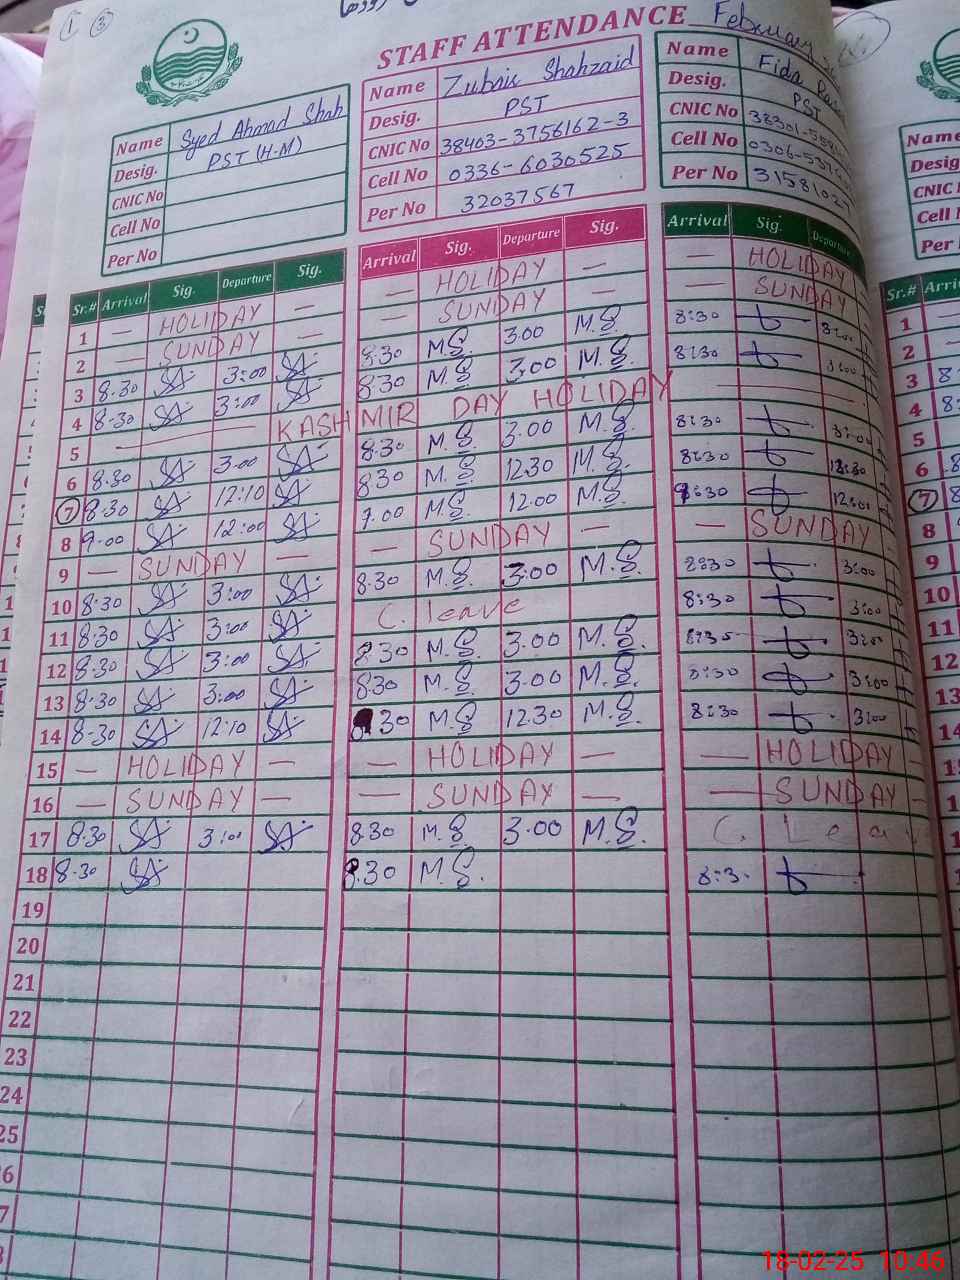 1 3
STAFF ATTENDANCE February
Name Syed Ahmad Shah
Desig. PST (H-M)
CNIC No
Cell No
Per No
Name Zubair Shahzaid
Desig. PST
CNIC No 38403-3756162-3
Cell No 0336-6030525
Per No 32037567
Name Fida
Desig. PST
CNIC No
Cell No
Per No 31581027
Sr.# Arrival Sig. Departure Sig. Arrival Sig. Departure Sig. Arrival Sig. Departure
1 — HOLIDAY — — HOLIDAY — — HOLIDAY
2 — SUNDAY — — SUNDAY — — SUNDAY
3 8.30 SA 3:00 SA 8.30 M.S. 3.00 M.S. 8:30 3:00
4 8.30 SA 3:00 SA 8.30 M.S. 3.00 M.S. 8:30 3:00
5 — KASHMIR DAY HOLIDAY —
6 8.30 SA 3:00 SA 8.30 M.S. 3.00 M.S. 8:30 3:00
7 8.30 SA 12:10 SA 8.30 M.S. 12.30 M.S. 8:30 12:30
8 9.00 SA 12:00 SA 9.00 M.S. 12.00 M.S. 9:30 12:00
9 — SUNDAY — — SUNDAY — — SUNDAY
10 8.30 SA 3:00 SA 8.30 M.S. 3.00 M.S. 8:30 3:00
11 8.30 SA 3:00 SA C. leave 8:30 3:00
12 8.30 SA 3:00 SA 8.30 M.S. 3.00 M.S. 8:30 3:00
13 8.30 SA 3:00 SA 8.30 M.S. 3.00 M.S. 8:30 3:00
14 8.30 SA 12:10 SA 30 M.S. 12.30 M.S. 8:30 3:00
15 — HOLIDAY — — HOLIDAY — — HOLIDAY
16 — SUNDAY — — SUNDAY — — SUNDAY
17 8.30 SA 3:00 SA 8.30 M.S. 3.00 M.S. C. Lea
18 8.30 SA 8.30 M.S. 8:3
19
20
21
22
23
24
25
6
7
8
Name
Desig
CNIC
Cell
Per
Sr.# Arri
1
2
3 8
4 8
5
6 8
7 8
8
9
10
11
12
13
14
18-02-25 10:46